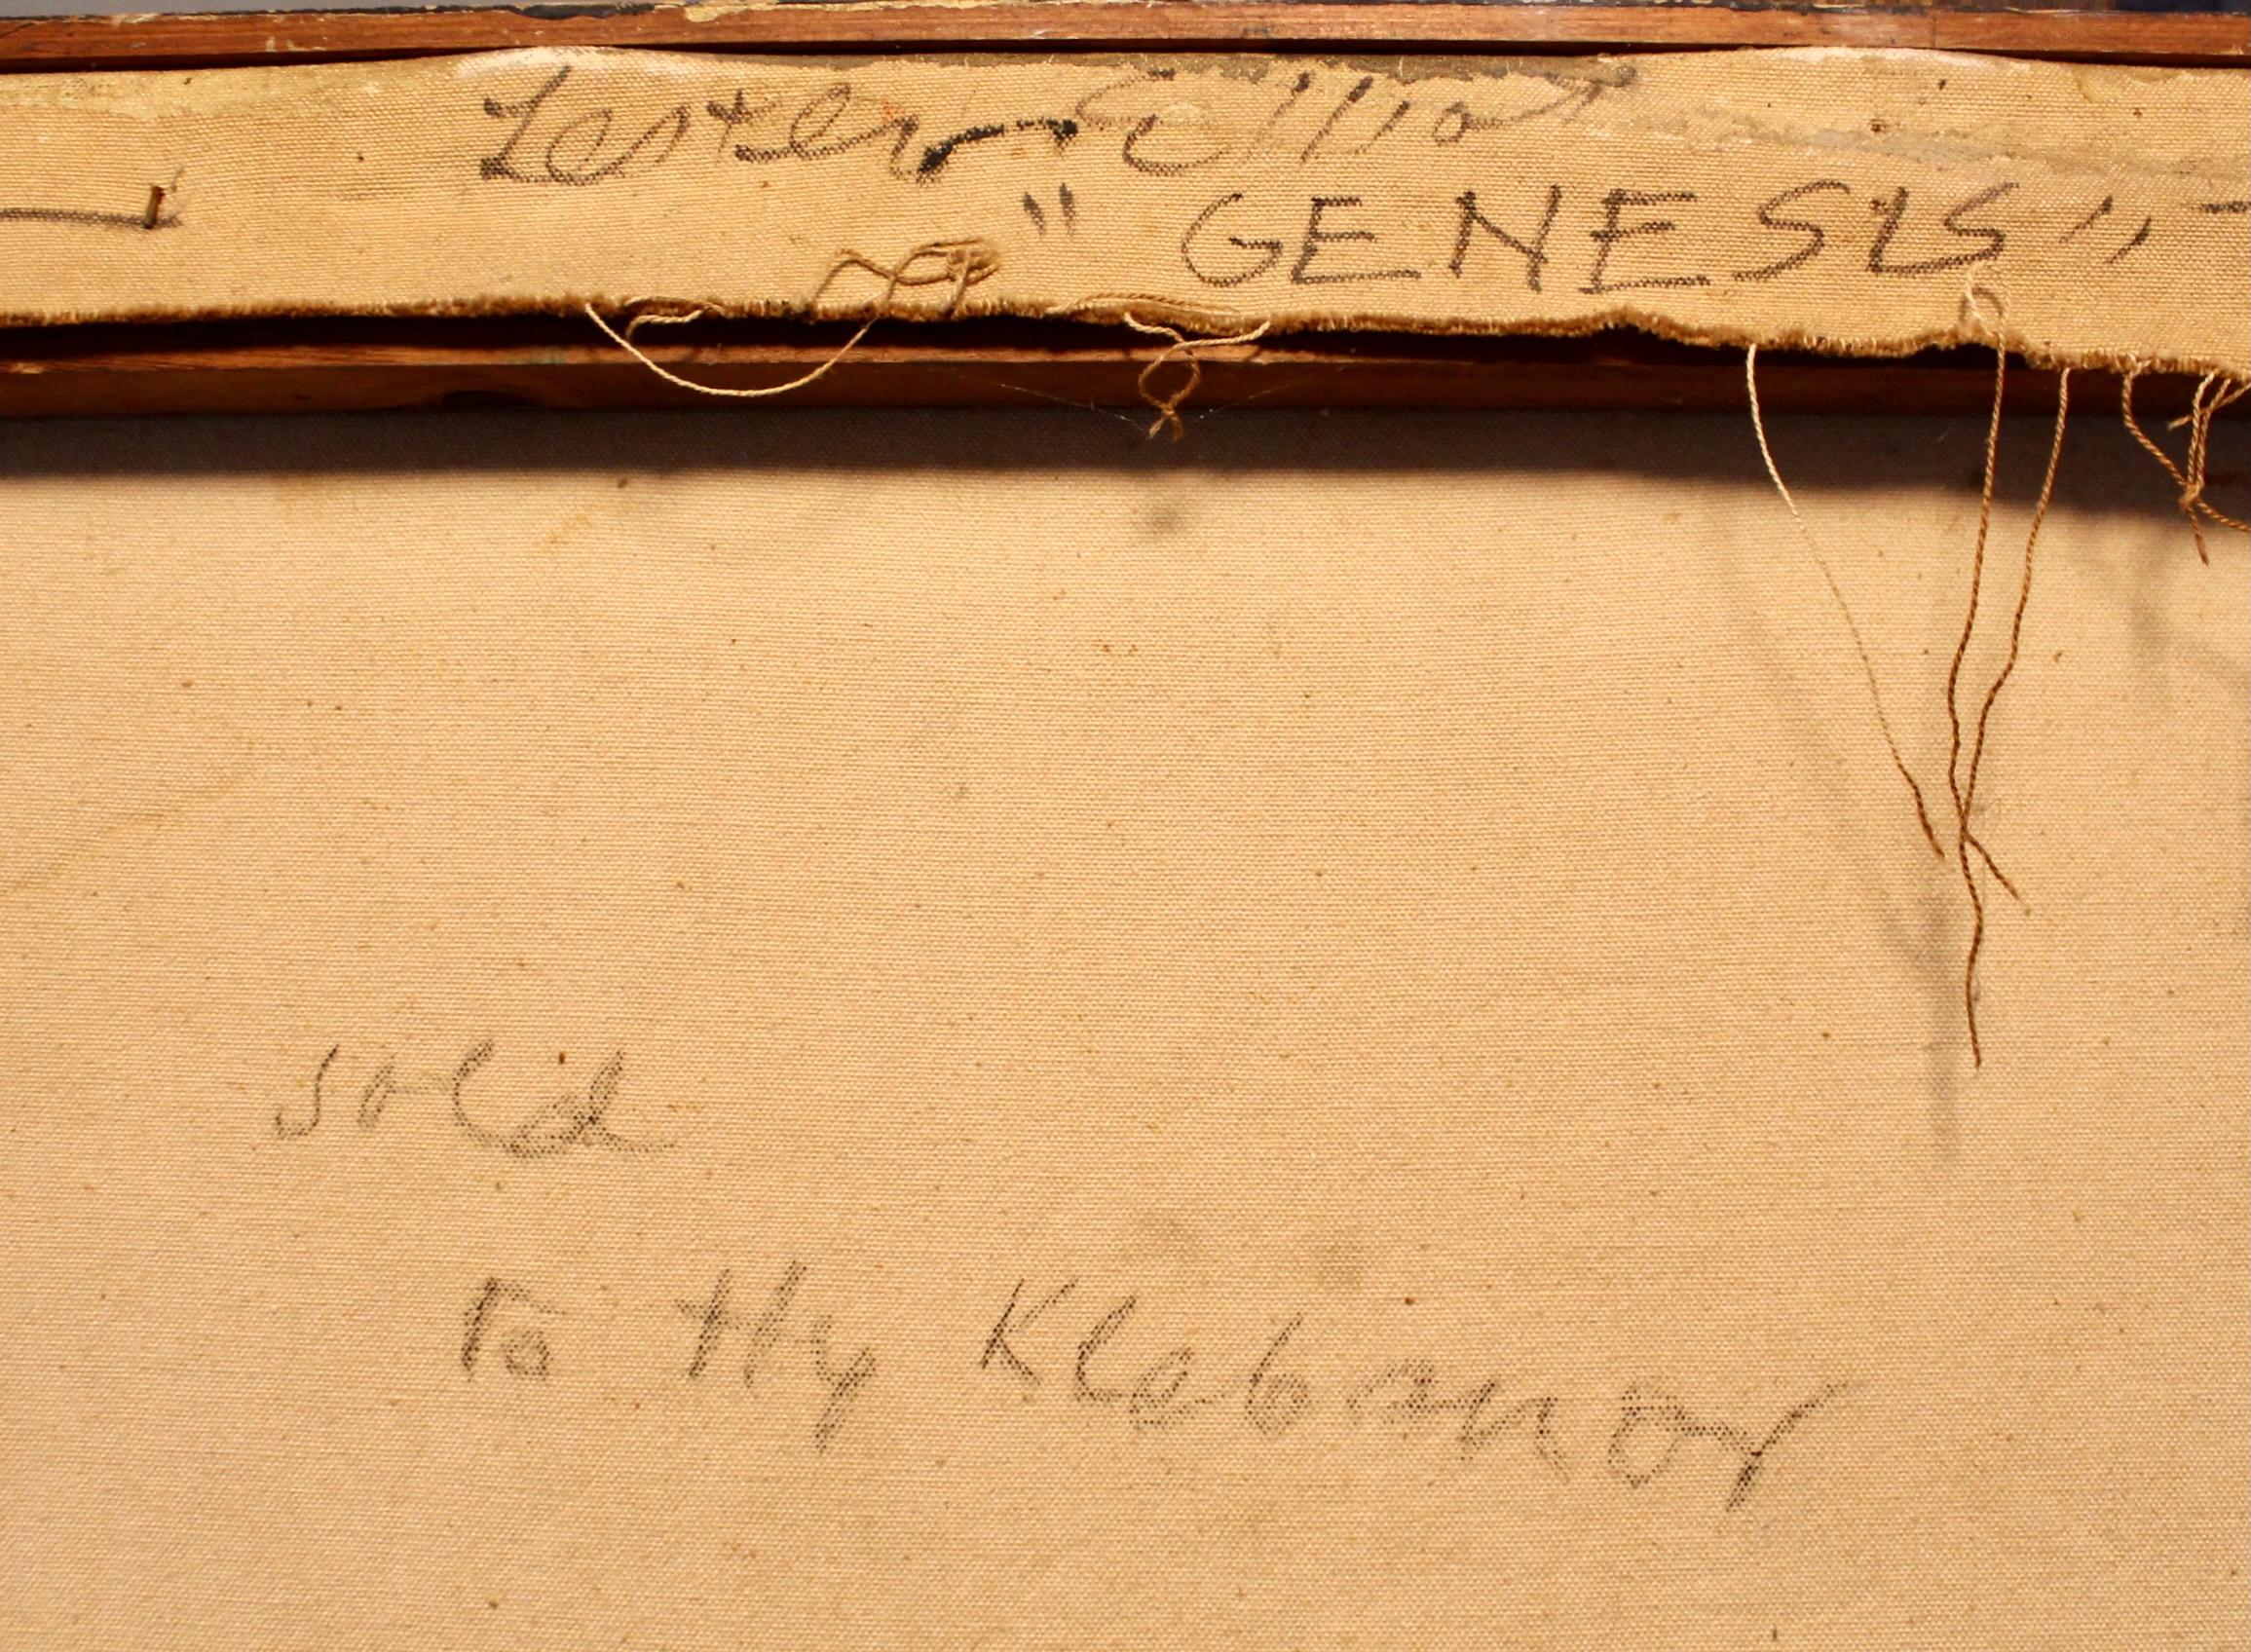 Lester Elliot
"GENESIS"
sold
To Hy Klebanor